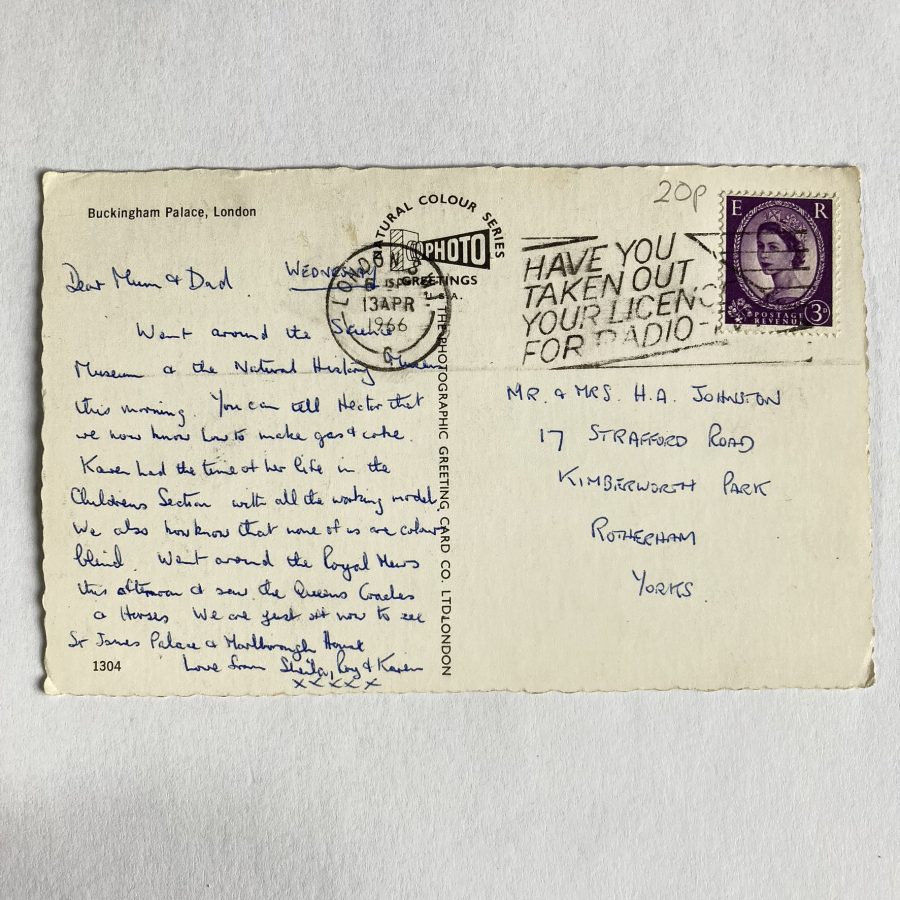 Buckingham Palace, London
Dear Mum & Dad
WEDNESDAY
Went around the Science
Museum & the Natural History Museum
this morning. You can tell Hector that
we now know how to make gas & coke.
Karen had the time of her life in the
Childrens Section with all the working model.
We also now know that none of us are colour
blind. Went around the Royal Mews
this afternoon & saw the Queens Coaches
& Horses We are just off now to see
St James Palace & Marlborough House
Love from Sheila, Roy & Karen
x x x x x
1304
NATURAL COLOUR SERIES
PHOTO
GREETINGS
THE PHOTOGRAPHIC GREETING CARD CO. LTD. LONDON
LONDON
13 APR
1966
HAVE YOU
TAKEN OUT
YOUR LICENC
FOR RADIO-
20p
E R
POSTAGE
REVENUE
3D
MR. & MRS. H.A. JOHNSTON
17 STRAFFORD ROAD
KIMBERWORTH PARK
ROTHERHAM
YORKS.